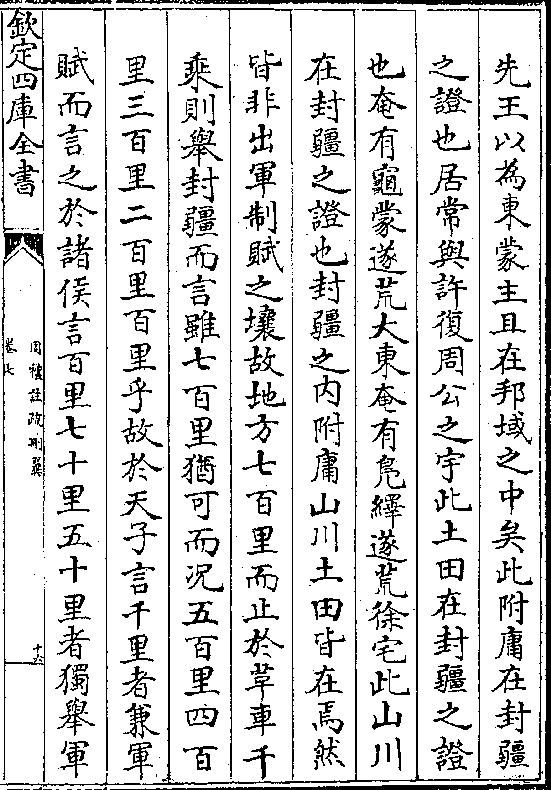 先王以為東蒙主且在邦域之中矣此附庸在封疆
之證也居常與許復周公之宇此土田在封疆之證
也奄有龜蒙遂荒大東奄有鳬繹遂荒徐宅此山川
在封疆之證也封疆之内附庸山川土田皆在焉然
皆非出軍制賦之壤故地方七百里而止於革車千
乘則舉封疆而言雖七百里猶可而况五百里四百
里三百里二百里百里乎故於天子言千里者兼軍
賦而言之於諸侯言百里七十里五十里者獨舉軍
欽定四庫全書
周禮註疏刪翼
卷七
十六